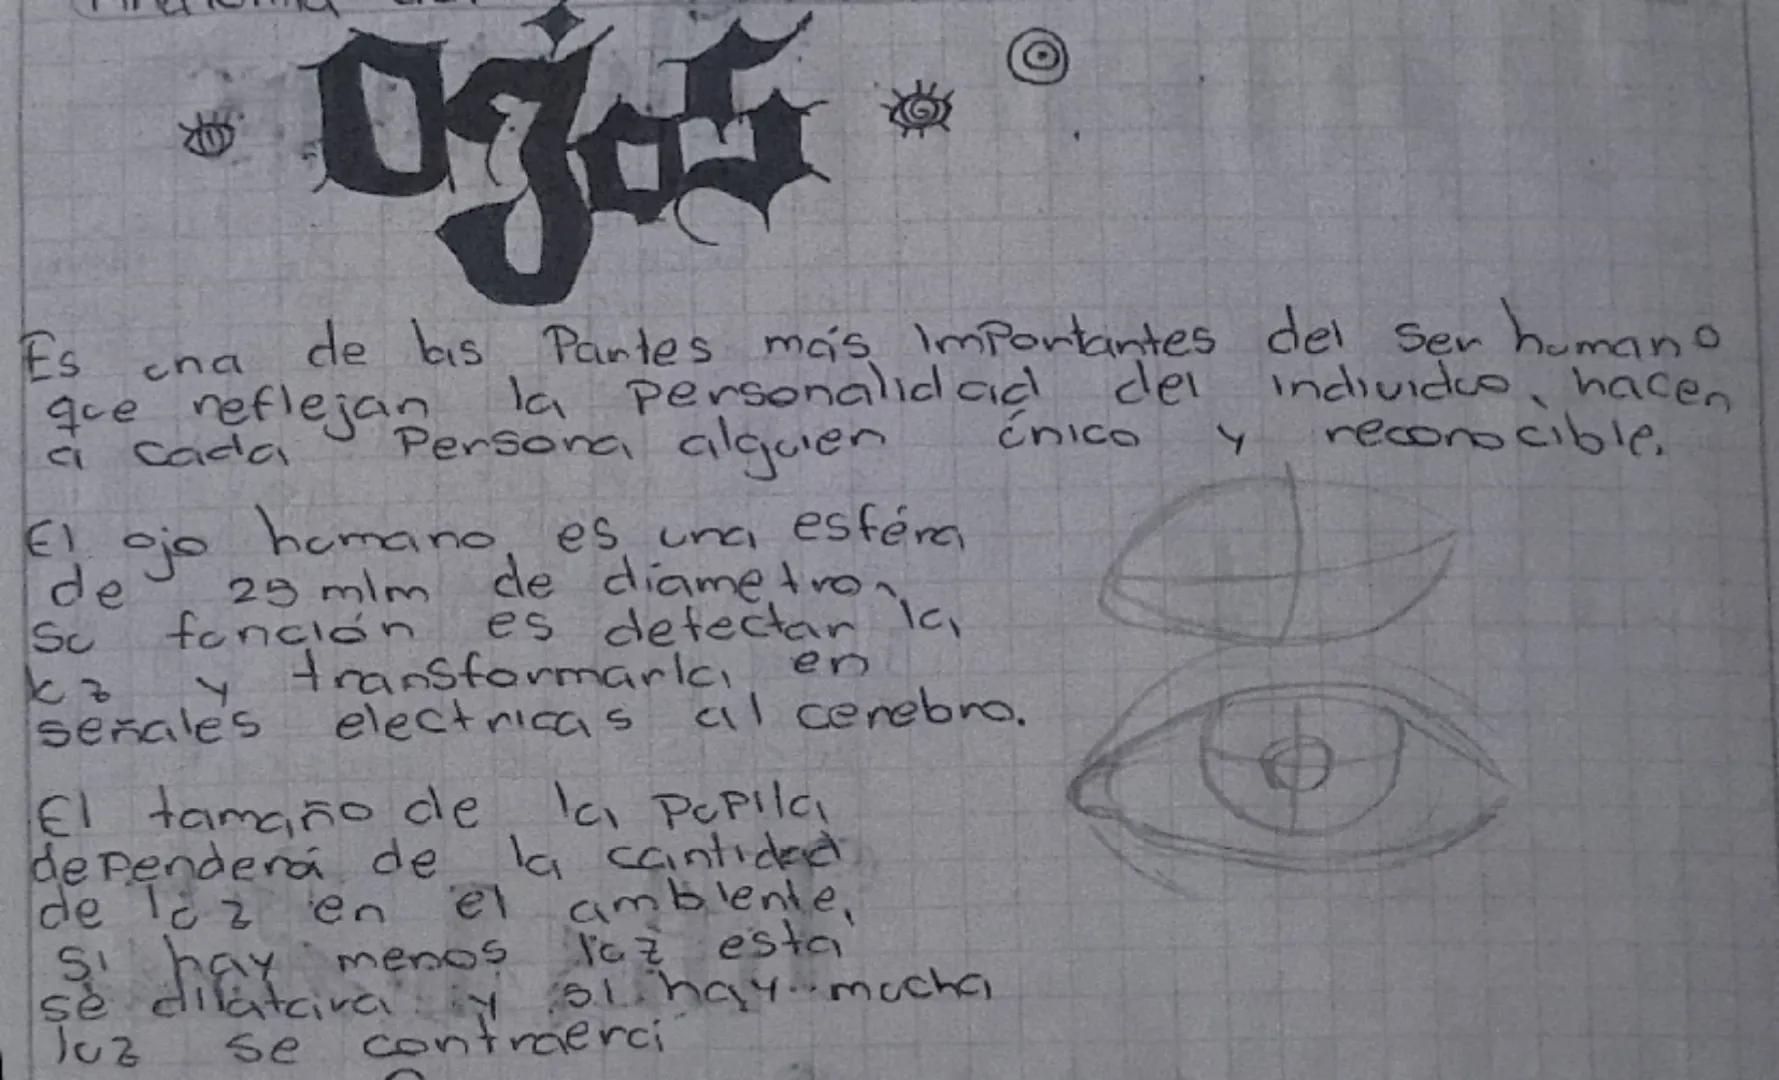 Ojos
Es una de las Partes más Importantes del Ser humano
que reflejan la Personalidad del individuo, hacen
a cada Persona alguien único y reconocible.
El ojo humano, es una esféra
de 25 mlm de diametro,
su función es detectar la
luz y transformarla en
señales electricas al cerebro.
El tamaño de la PuPila
dePenderá de la cantidad
de luz en el ambiente,
si hay menos luz esta
se dilatara y si hay mucha
luz se contraerá